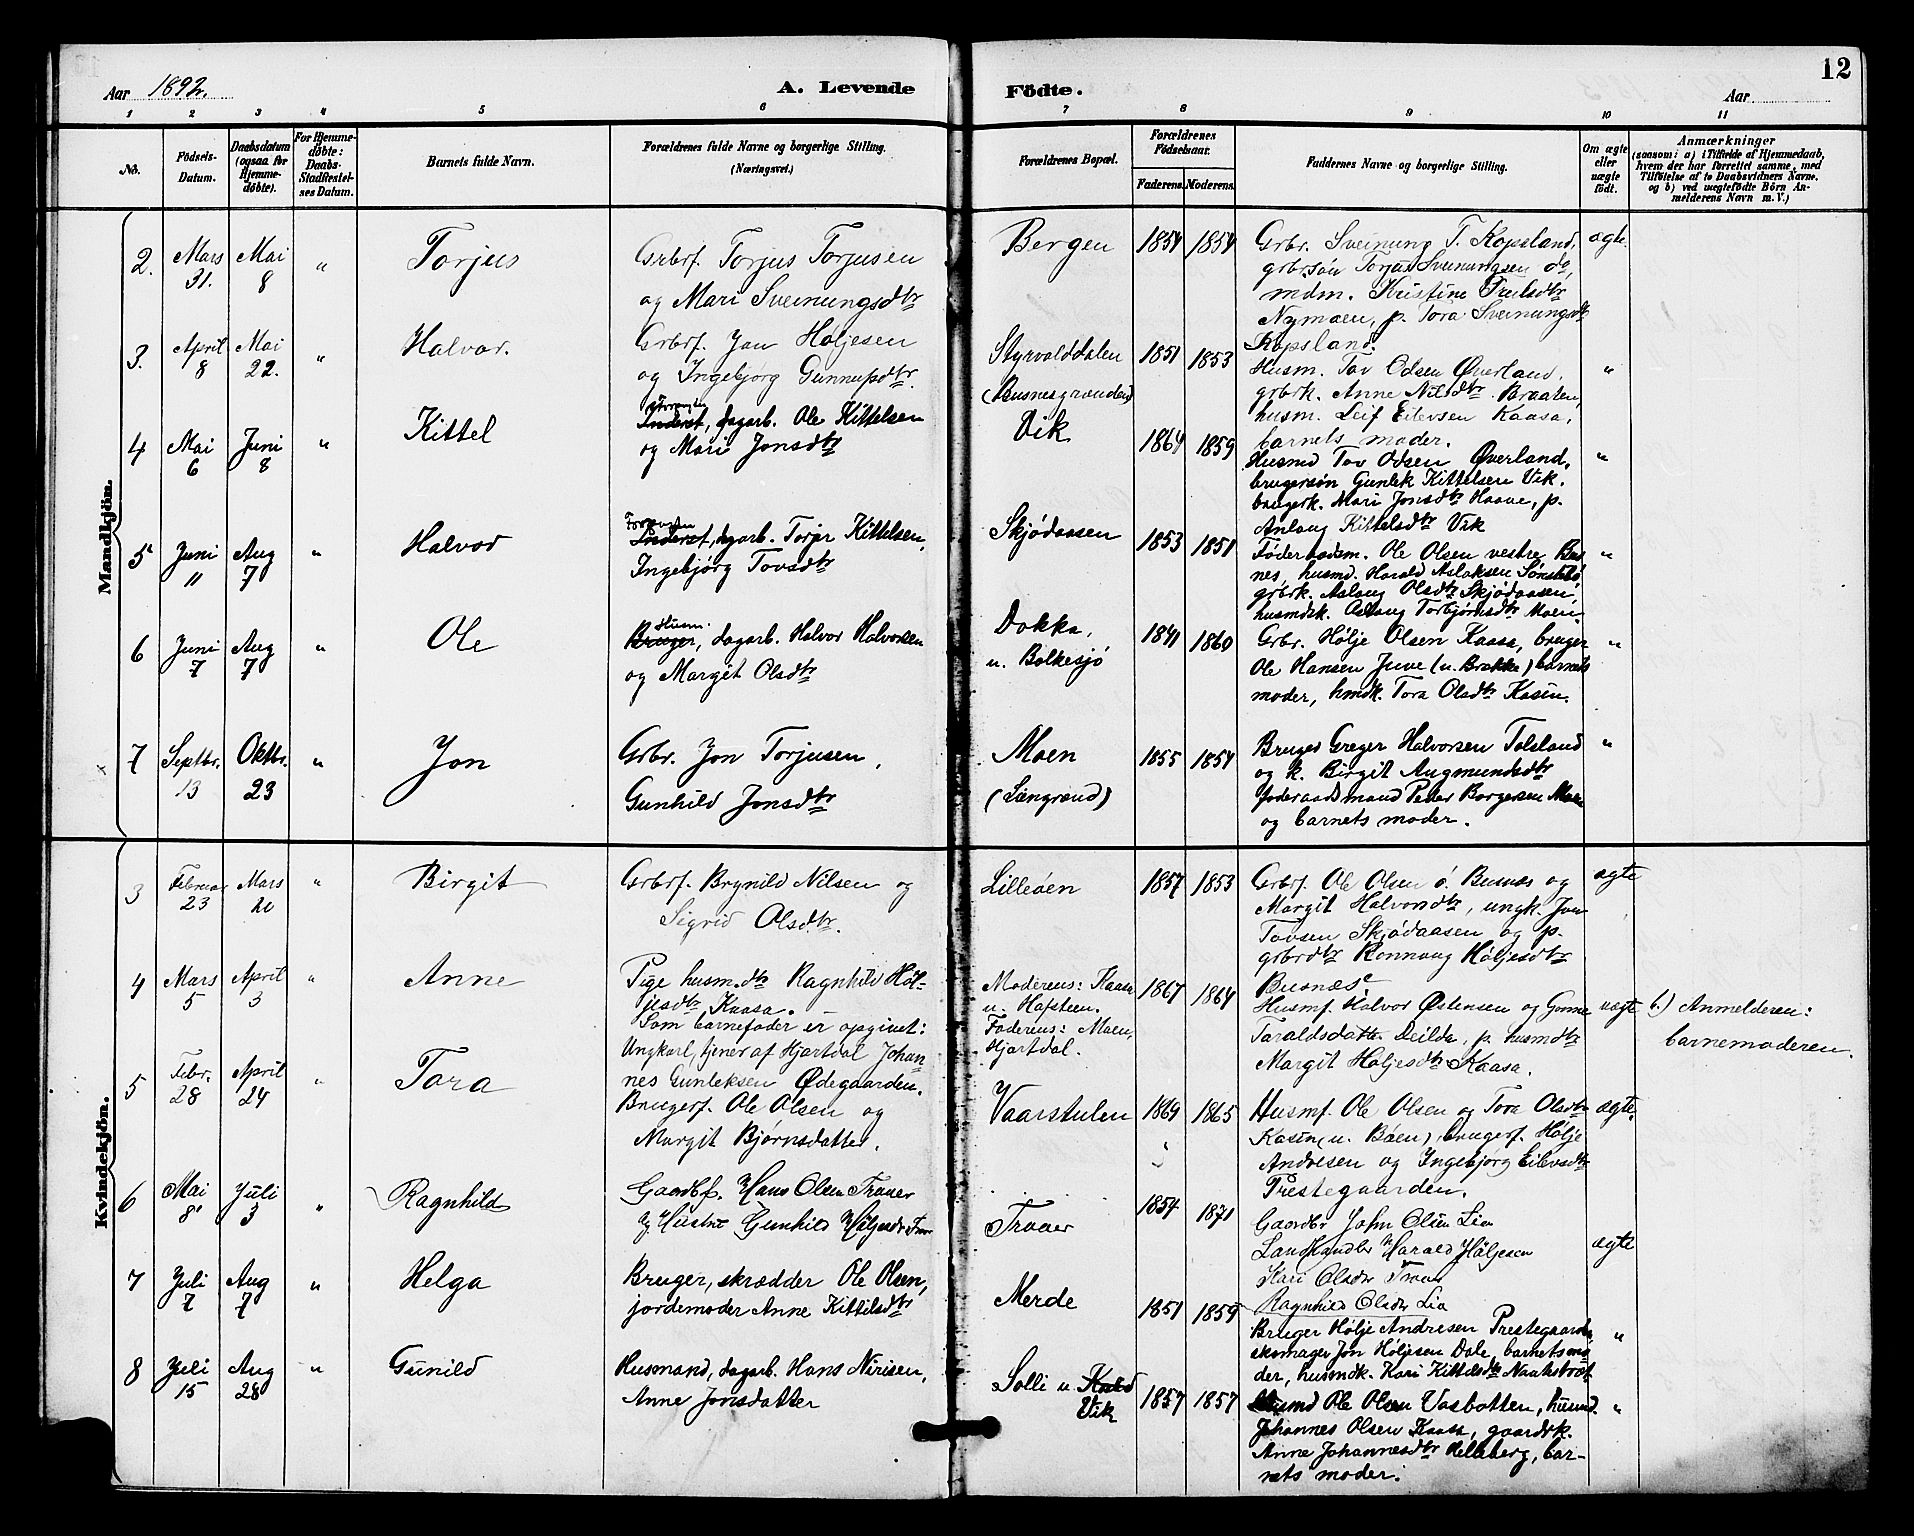 12
Aar 1892.
A. Levende Födte.
Aar
1 2 3 4 5 6 7 8 9 10 11
No.
Födsels-Datum.
Daabsdatum (ogsaa for Hjemme-döbte).
For Hjemme-döbte: Daabs-Stadfæstel-ses Datum.
Barnets fulde Navn.
Forældrenes fulde Navne og borgerlige Stilling. (Næringsvei.)
Forældrenes Bopæl.
Forældrenes Födselsaar.
Faderens. Moderens.
Faddernes Navne og borgerlige Stilling.
Om ægte eller uægte født.
Anmærkninger
(saasom: a) i Tilfælde af Hjemmedaab, hvem der har forrettet samme, med Tilföielse af to Daabsvidners Navne, og b) ved uægtefödte Börn An-melderens Navn m. V.)
Mandkjön.
2. Mars 31. Mai 8 " Torjus
Grbrf. Torjus Torjusen
og Mari Sveinungsdtr
Bergen 1854 1854
Grbr. Sveinung T. Kopsland,
grbrsön Torjus Sveinungsen do,
mdm. Kristine Trulsdtr
Nymoen, p. Tora Sveinungsdtr
Kopsland.
ægte.
3. April 8 Mai 22. " Halvor.
Grbrf. Jon Høljesen
og Ingebjørg Gunnufsdtr.
Styrvolddalen
(Busnesgrænden)
1851 1853
Husm. Tov Odsen Øverland,
grbrk. Anne Nilsdtr Braaten,
husm. Leif Eilevsen Kaasa,
barnets moder.
"
4 Mai 6 Juni 8 " Kittel
Inderst, dagarb. Ole Kittelsen
og Mari Jonsdtr
Vik 1864 1859
Husmd Tov Odsen Øverland,
brugersön Gunlek Kittelsen Vik,
brugerk. Mari Jonsdtr Haave, p.
Aslaug Kittelsdtr Vik
"
5 Juni 11 Aug 7 " Halvor
Inderst, dagarb. Torjer Kittelsen,
Ingebjörg Tovsdtr
Skjödaasen 1853 1851
Föderaadsm. Ole Olsen vestre Bus-
nes, husmd. Harald Aslaksen Sønstebø
grbrk. Aslaug Olsdtr Skjödaasen,
husmdsk. Aslaug Torbjörnsdtr Moen.
"
6 Juni 7 Aug 7 " Ole
Husm.
Bruger, dagarb. Halvor Halvorsen
og Margit Olsdtr
Dokka,
u. Bolkesjö
1841 1860
Grbr. Hölje Olsen Kaasa, bruger
Ole Hansen Juve (u. Brække) barnets
moder, hmdk. Tora Olsdtr Kasin.
"
7 Septbr. 13 Oktbr. 23 " Jon
Grbr. Jon Torjusen,
Gunhild Jonsdtr
Moen
(Langrænd)
1855 1854
Bruger Greger Halvorsen Tolsland
og k. Birgit Augmundsdtr
foderaadsmand Peder Borgersen Moen
og barnets moder.
"
Kvindekjön.
3 Februar 23 Mars 20 " Birgit
Grbrf. Brynild Nilsen og
Sigrid Olsdtr.
Lilleöen 1857 1853
Grbrf. Ole Olsen ö. Busnes og
Margit Halvorsdtr, ungk. Jon
Tovsen Skjödaasen og p.
grbrdtr Rönnaug Höljesdtr
Busnæs.
ægte
4 Mars 5 April 3 " Anne
Pige husm.dtr Ragnhild Höl-
jesdtr Kaasa.
Som barnefader er opgivet:
Ungkarl, tjener af Hjartdal Johan-
nes Gunleksen Ødegaarden.
Moderens: Kaasa
u. Hafsteen.
Faderens: Moen,
Hjartdal.
1867 1864
Husmf. Halvor Østensen og Gunne
Taraldsdatter Deilda, p. husmdtr
Margit Höljesdtr Kaasa.
uægte
b.) Anmelderen:
barnemoderen.
5 Febr. 28 April 24 " Tora
Brugerf. Ole Olsen og
Margit Bjørnsdatter.
Vaarstulen 1869 1865
Husmf. Ole Olsen og Tora Olsdtr
Kasin (u. Böen), brugerf. Hölje
Andresen og Ingebjörg Eilevsdtr
Prestegaarden.
ægte.
6 Mai 8 Juli 3 " Ragnhild
Gaardbf. Hans Olsen Traaer
og Hustru Gunhild Höljesdr Traaer
Traaer 1854 1871
Gaardbr John Olsen Lia
Landhandler Harald Höljesen
Kari Olsdtr Traaer
Ragnhild Olsdtr Lia
ægte
7 Juli 7 Aug 7 " Helga
Bruger, skrædder Ole Olsen,
jordemoder Anne Kittilsdtr
Merde 1851 1859
Bruger Hölje Andresen Prestegaarden,
skomager Jon Höljesen Dale, barnets mo-
der, husmdk. Kari Kittilsdtr
"
8 Juli 15 Aug 28 " Gunild
Husmand, dagarb. Hans Nirisen,
Anne Jonsdatter
Solli u
Vik
1857 1857
Husmd Ole Olsen Vasbotten, husmd.
Johannes Olsen Kaasa, gaardbrk.
Anne Johannesdtr Helleberg, bar-
nets moder.
"